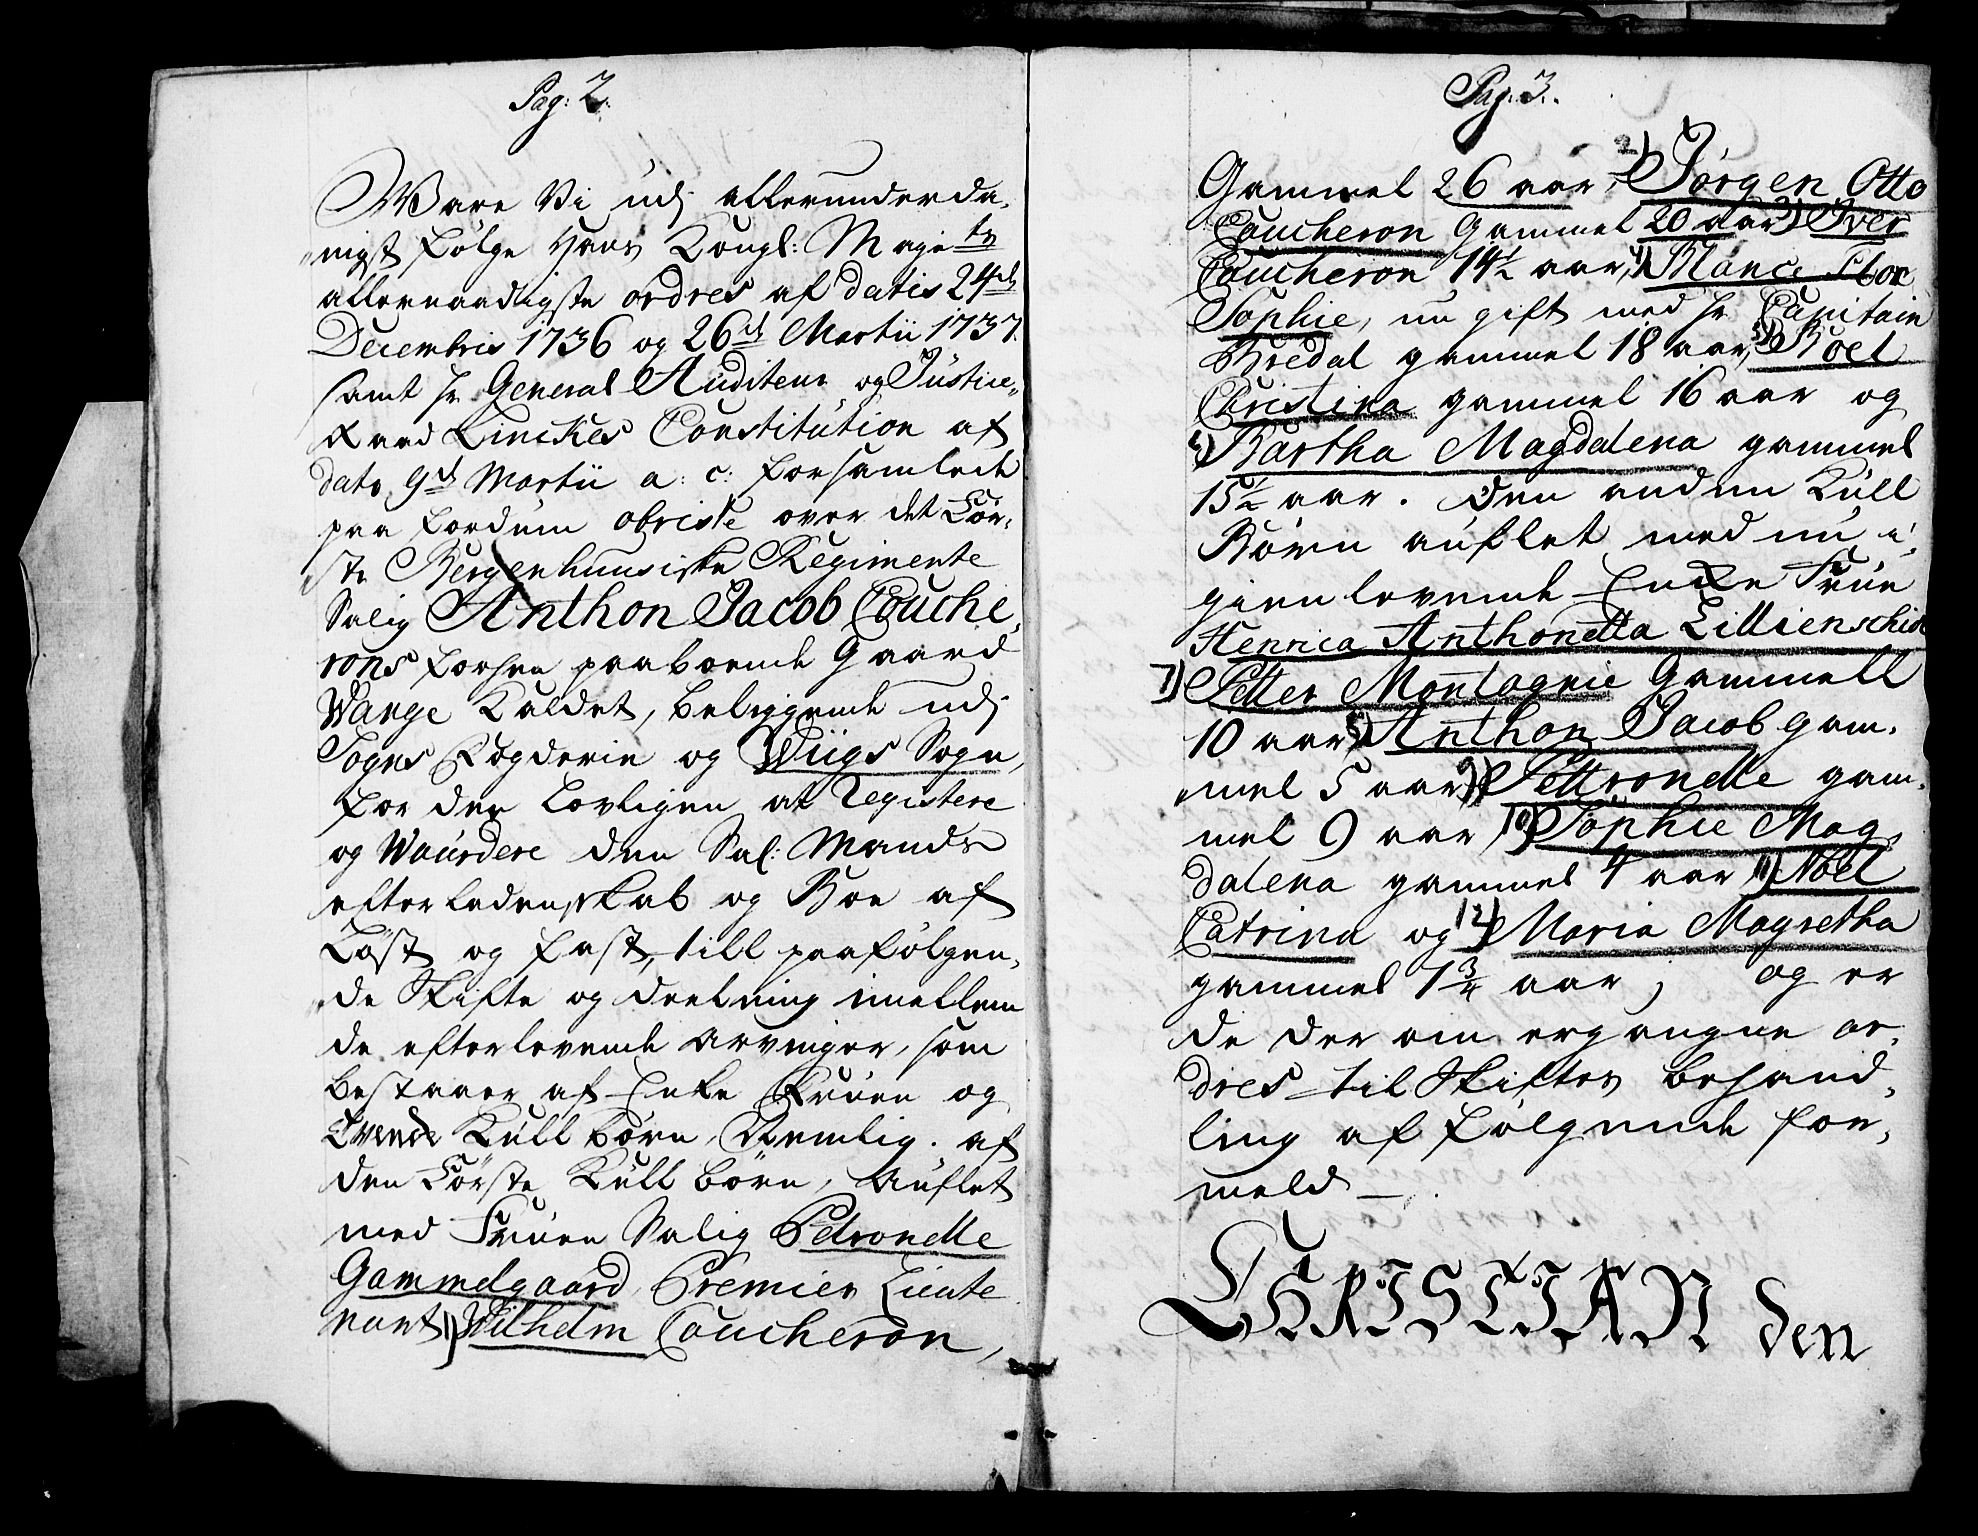 Pag: 2.
Ware Vi udj allerunderda-
nigst følge Hans Kongl: Majets
allernaadigste ordres af datis 24de
Decembris 1736 og 26de Martii 1737.
samt Hr General Auditeur og Justice-
Raad Linckes Constitution af
dato 9de Martii a: c: forsamlede
paa fordum obriste over det För-
ste Bergenhuusiske Regimente
Salig Anthon Jacob Couche-
rons forhen paaboende Gaard
Wange Kaldet, beliggende udj
Sogns Fogderie og Wiigs Sogn,
for der Lovligen at Registere
og Waurdere den Sal: Mands
efterladenskab og Boe af
Löst og fast, till paafölgen-
de Skifte og deelning imellem
de efterlevende Arvinger, som
bestaaer af Enke Fruen og
Tvende Kull börn, Nemlig. af
den Förste Kull börn, Auflet
med Fruen Salig Petronelle
Gammelgaard, Premier Lieute
nant 1) Wilhelm Coucheron,
Pag: 3.
Gammel 26 aar, 2) Jörgen Otto
Coucheron Gammel 20 aar 3) Iver
Coucheron 14½ aar, 4) Blanci Elbor
Sophie, nu gift med Hr Capitain
Bredal gammel 18 aar, 5) Boel
Christina gammel 16 aar og
6) Bartha Magdalena gammel
15½ aar. Den anden Kull
Börn auflet med nu i-
gien levende Encke Frue
Henrica Anthonetta Lillienschiold
7) Petter Montagnie Gammell
10 aar 8) Anthon Jacob gam-
mel 5 aar 9) Pettronelle gam-
mel 9 aar, 10) Sophie Mag-
dalena gammel 4 aar 11) Abel
Catrina og 12) Maria Magretha
gammel 1¾ aar; og er
de der om ergangne or-
dres til Skiftes behand-
ling af fölgende for-
meld –
CHRISTIAN den